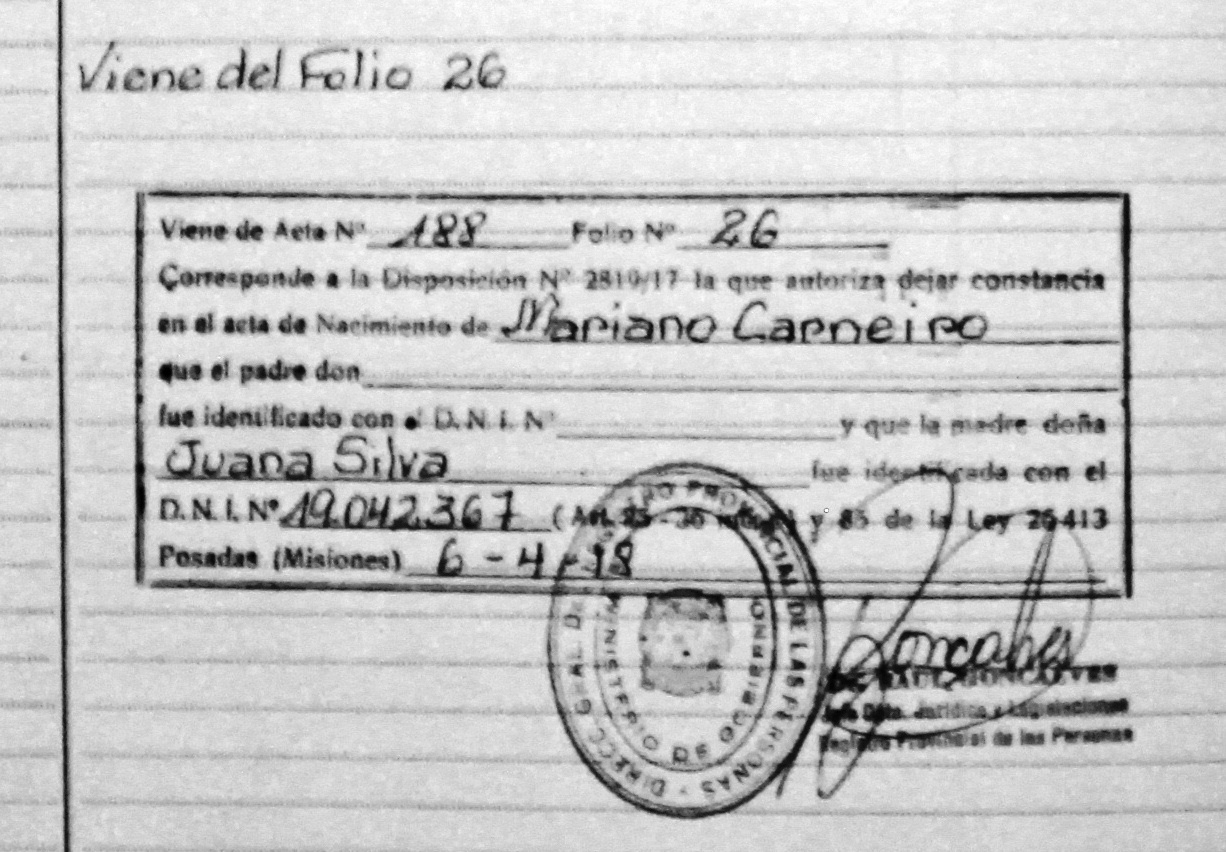 Viene del Folio 26
Viene de Acta Nº 188 Folio Nº 26
Corresponde a la Disposición Nº 2819/17 la que autoriza dejar constancia
en el acta de Nacimiento de Mariano Carneiro
que el padre don
fue identificado con el D. N. I. Nº y que la madre doña
Juana Silva fue identificada con el
D. N. I. Nº 19.042.367 ( Art. y 85 de la Ley 26413
Posadas (Misiones) 6 - 4 - 18
DIRECC. GRAL. DE REGISTRO PROVINCIAL DE LAS PERSONAS -
MINISTERIO DE GOBIERNO
Goncalves
GONCALVES
Jefe Dpto. Jurídica y Legislaciones
Registro Provincial de las Personas